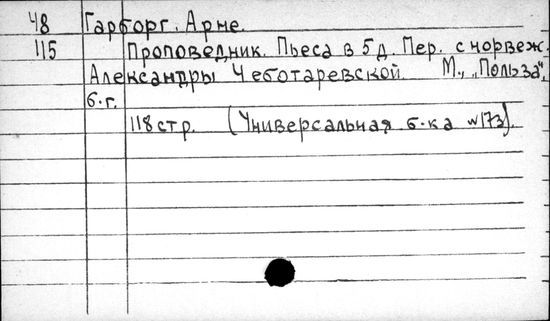 48 Гарборг. Арне.
115 Проповедник. Пьеса в 5 д. Пер. с норвеж.
Александры Чеботаревской. М., "Польза",
б.г.
118 стр. (Универсальная б-ка №173).